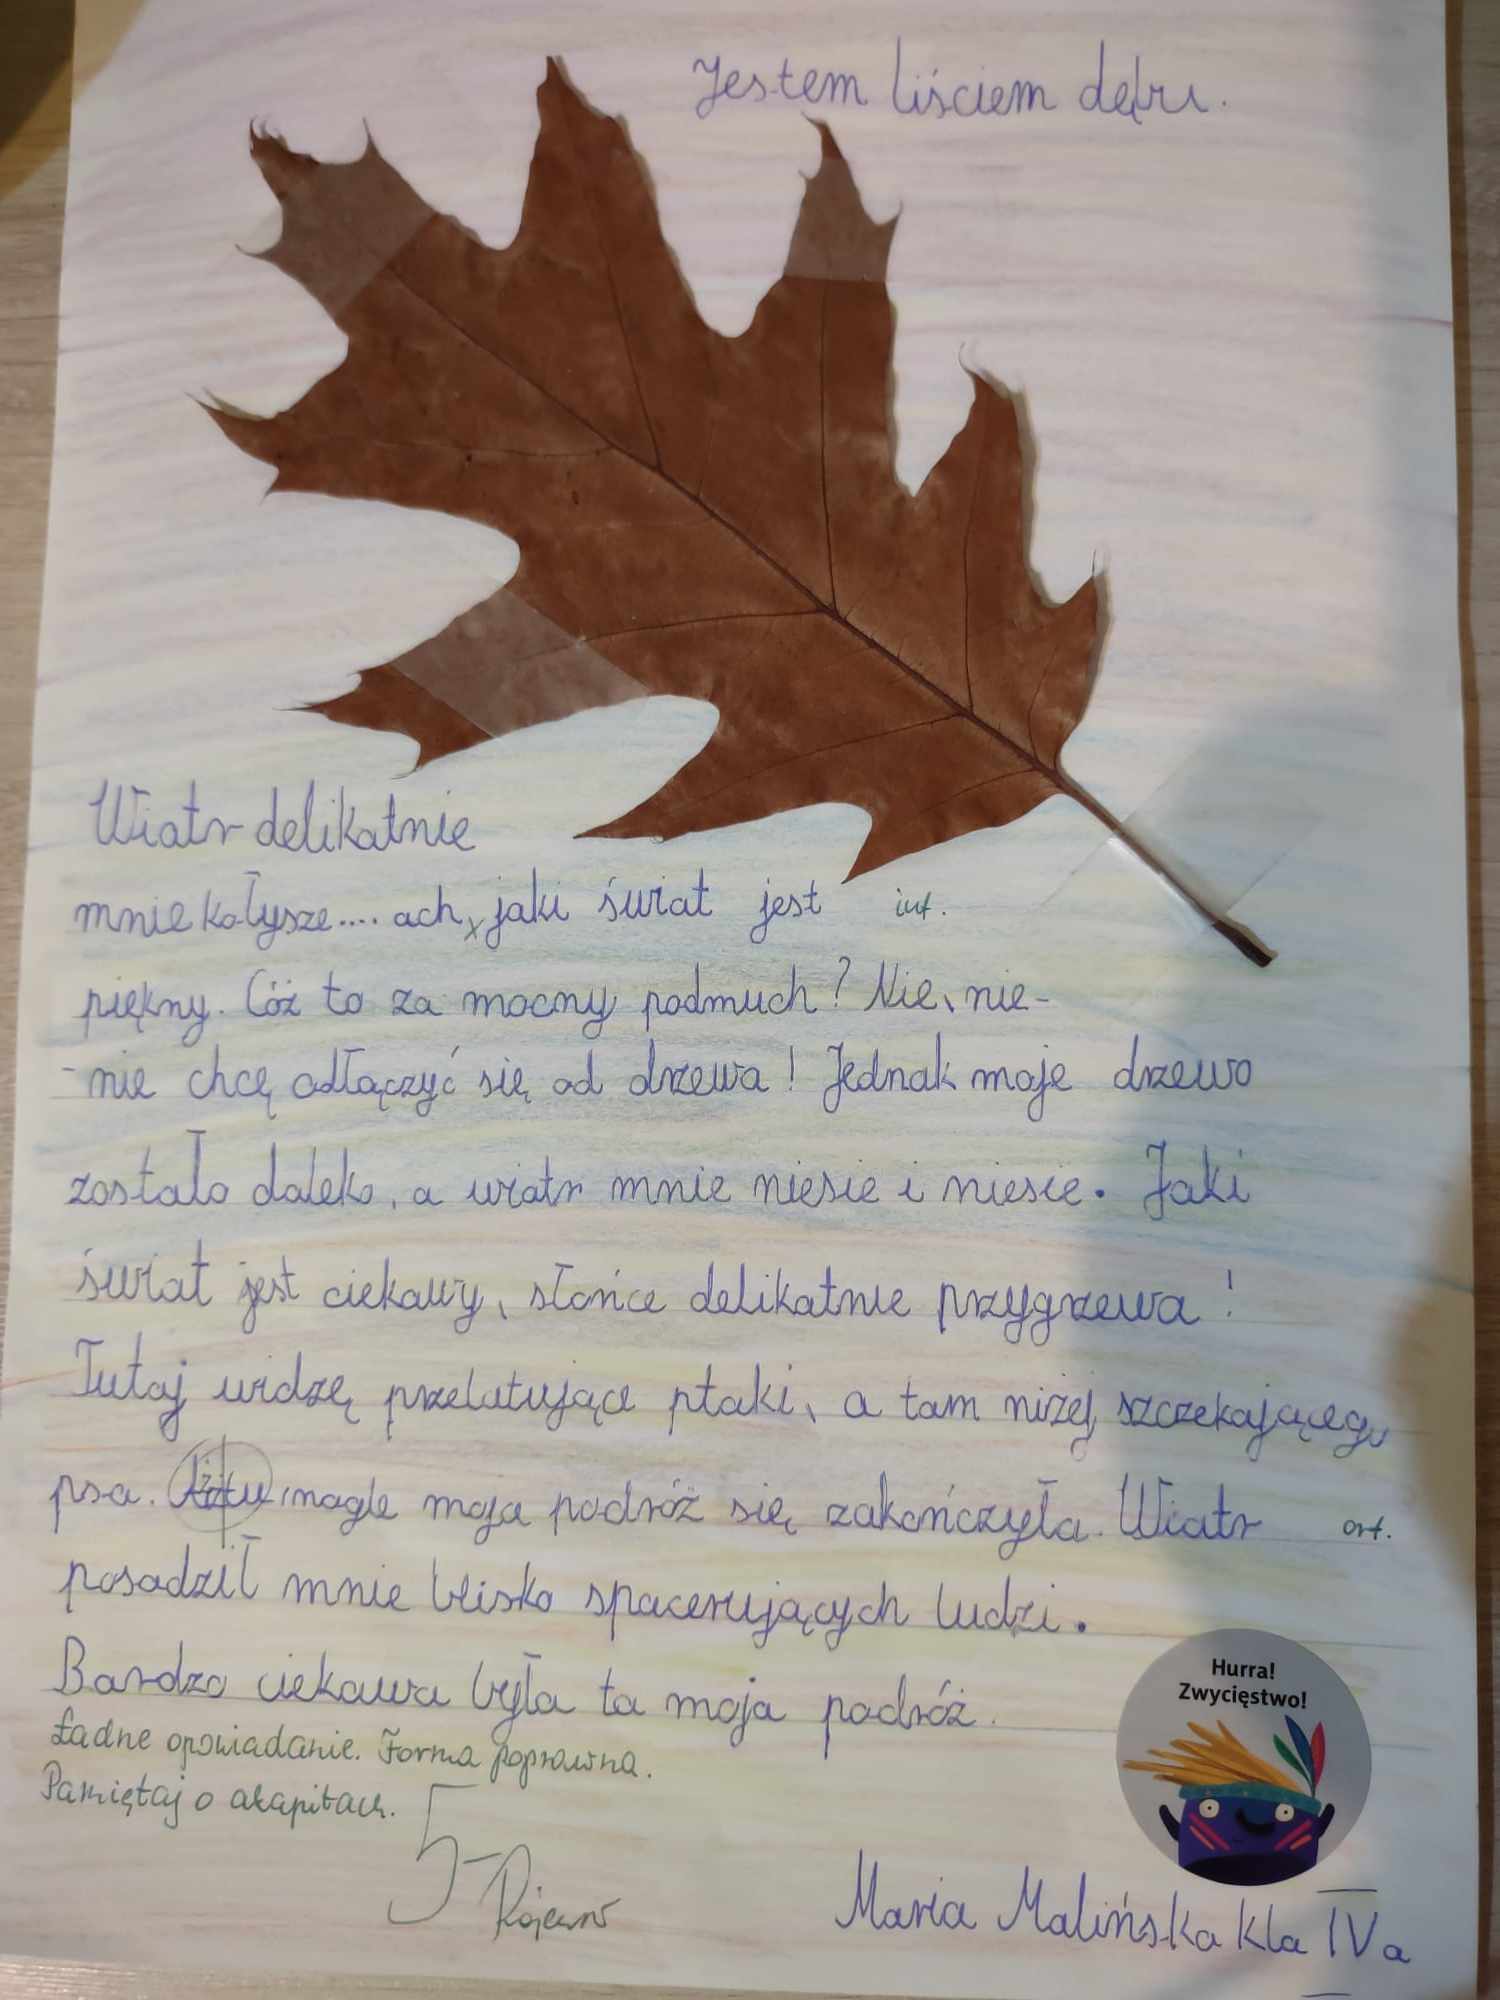 Jestem liściem dębu.
Wiatr delikatnie
mnie kołysze.... ach, jaki świat jest int.
piękny. Cóż to za mocny podmuch? Nie, nie-
-nie chcę odłączyć się od drzewa! Jednak moje drzewo
zostało daleko, a wiatr mnie niesie i niesie. Jaki
świat jest ciekawy, słońce delikatnie przygrzewa!
Tutaj widzę przelatujące ptaki, a tam niżej szczekającego
psa. i nagle moja podróż się zakończyła. Wiatr ort.
posadził mnie blisko spacerujących ludzi.
Bardzo ciekawa była ta moja podróż.
Ładne opowiadanie. Forma poprawna.
Pamiętaj o akapitach.
5-
Hurra!
Zwycięstwo!
Maria Malińska kla IV a